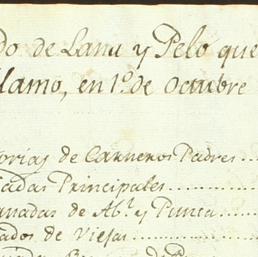 do de Lana y Pelo que
Alamo, en 1º de Octubre
orias de Carneros Padres...
iadas Principales..........
anadas de Abl. y Punca......
ados de Viejas..............